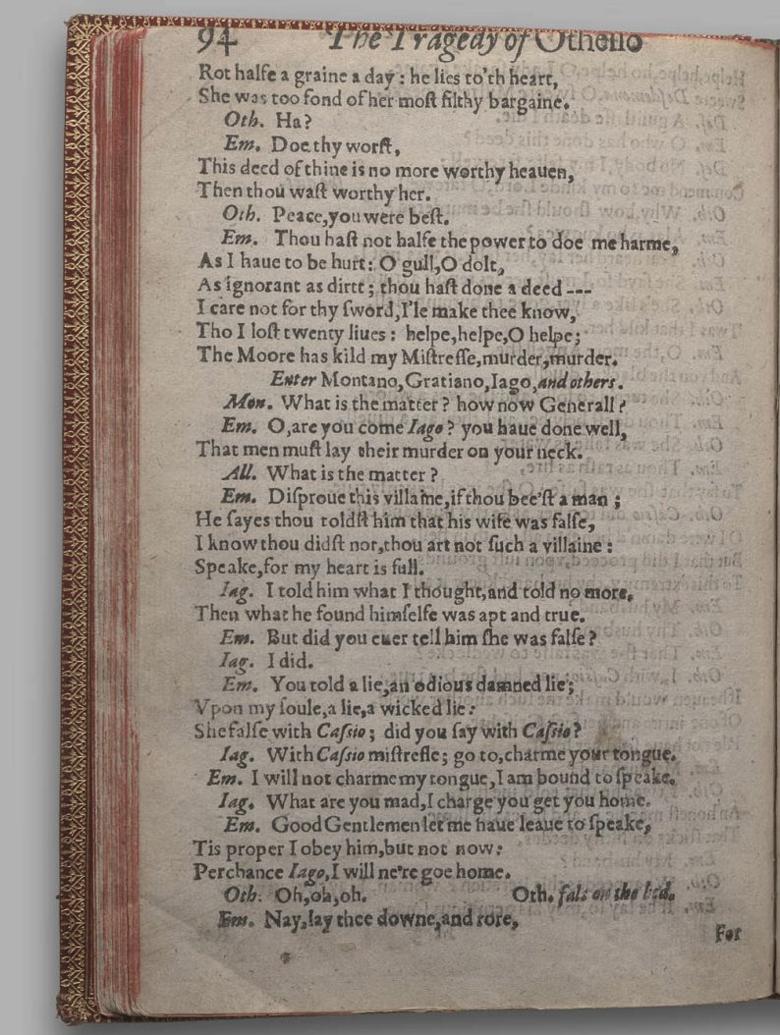 94 The Tragedy of Othello
Rot halfe a graine a day : he lies to'th heart,
She was too fond of her moſt filthy bargaine.
Oth. Ha?
Em. Doe thy worſt,
This deed of thine is no more worthy heauen,
Then thou waſt worthy her.
Oth. Peace,you were beſt.
Em. Thou haſt not halfe the power to doe me harme,
As I haue to be hurt: O gull,O dolt,
As ignorant as dirtt ; thou haſt done a deed ---
I care not for thy ſword,I'le make thee know,
Tho I loſt twenty liues : helpe,helpe,O helpe;
The Moore has kild my Miſtreſſe,murder,murder.
Enter Montano,Gratiano,Iago,and others.
Mon. What is the matter ? how now Generall ?
Em. O,are you come Iago ? you haue done well,
That men muſt lay their murder on your neck.
All. What is the matter ?
Em. Diſproue this villaine,if thou bee'ſt a man ;
He ſayes thou toldſt him that his wife was falſe,
I know thou didſt not,thou art not ſuch a villaine :
Speake,for my heart is full.
Iag. I told him what I thought,and told no more,
Then what he found himſelfe was apt and true.
Em. But did you euer tell him ſhe was falſe ?
Iag. I did.
Em. You told a lie,an odious damned lie;
Vpon my ſoule,a lie,a wicked lie :
She falſe with Caſſio ; did you ſay with Caſſio ?
Iag. With Caſſio miſtreſſe ; go to,charme your tongue.
Em. I will not charme my tongue,I am bound to ſpeake.
Iag. What are you mad,I charge you get you home.
Em. Good Gentlemen let me haue leaue to ſpeake,
Tis proper I obey him,but not now :
Perchance Iago,I will ne're goe home.
Oth. Oh,oh,oh. Oth. fals on the bed.
Em. Nay,lay thee downe,and rore,
For